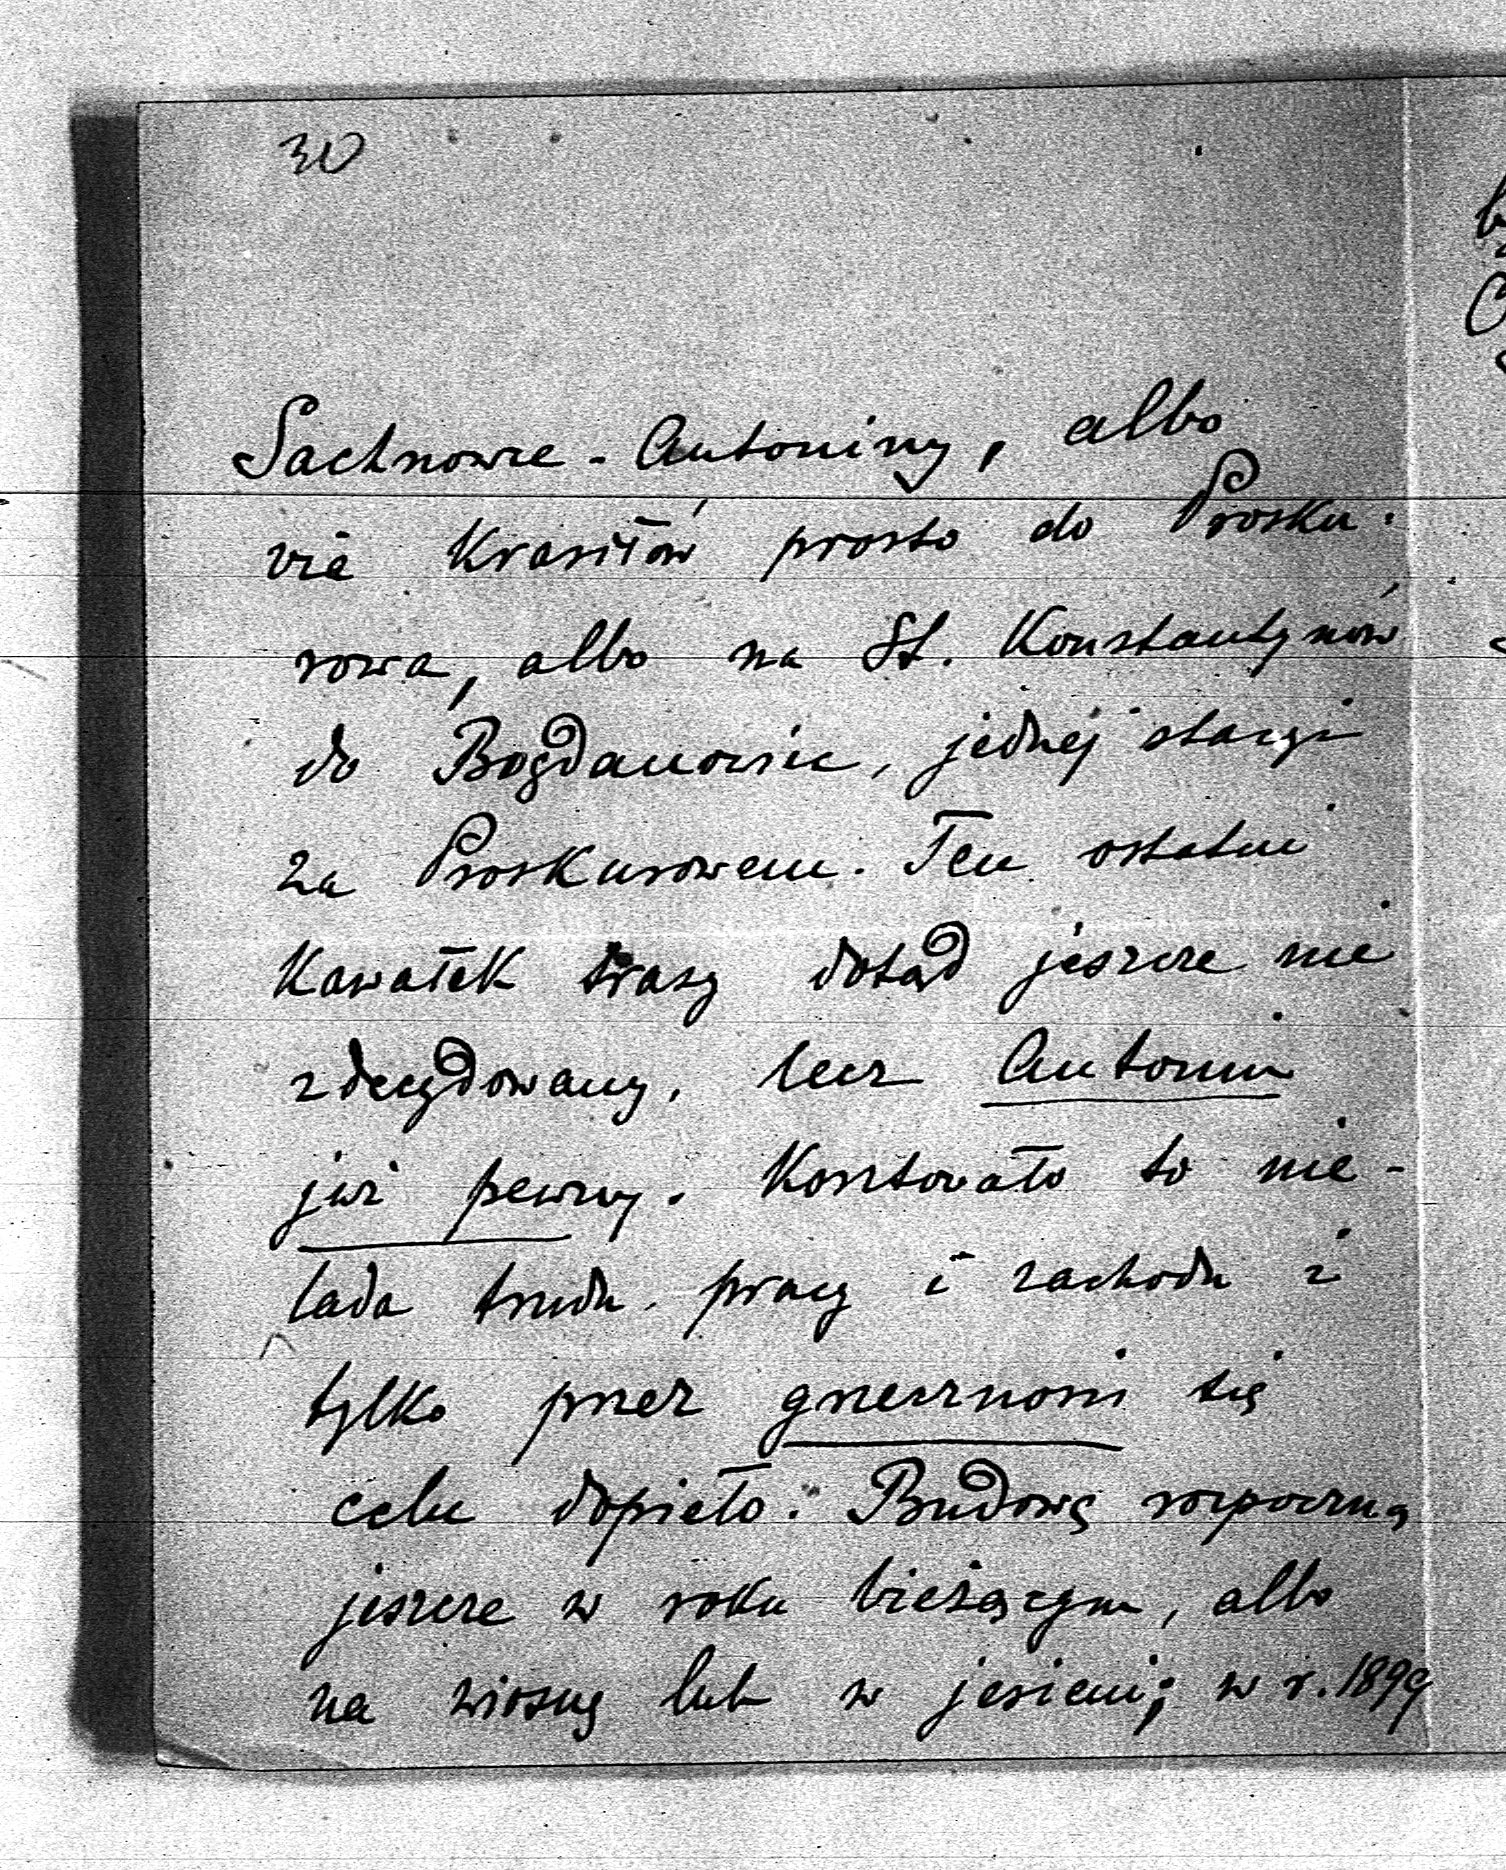 30
Sachnowce - Antoniny, albo
via Krasiłów prosto do Prosku-
rowa, albo na St. Konstantynów
do Bogdanowic, jednej stacyi
za Proskurowem. Ten ostatni
kawałek trasy dotąd jeszcze nie
zdecydowany, lecz Antonin
już pewny. Kosztowało to nie-
lada trudu, pracy i zachodu i
tylko przez grzeczność się
celu dopięło. Budowę rozpoczną
jeszcze w roku bieżącym, albo
na wiosnę lub w jesieni; w r. 1899